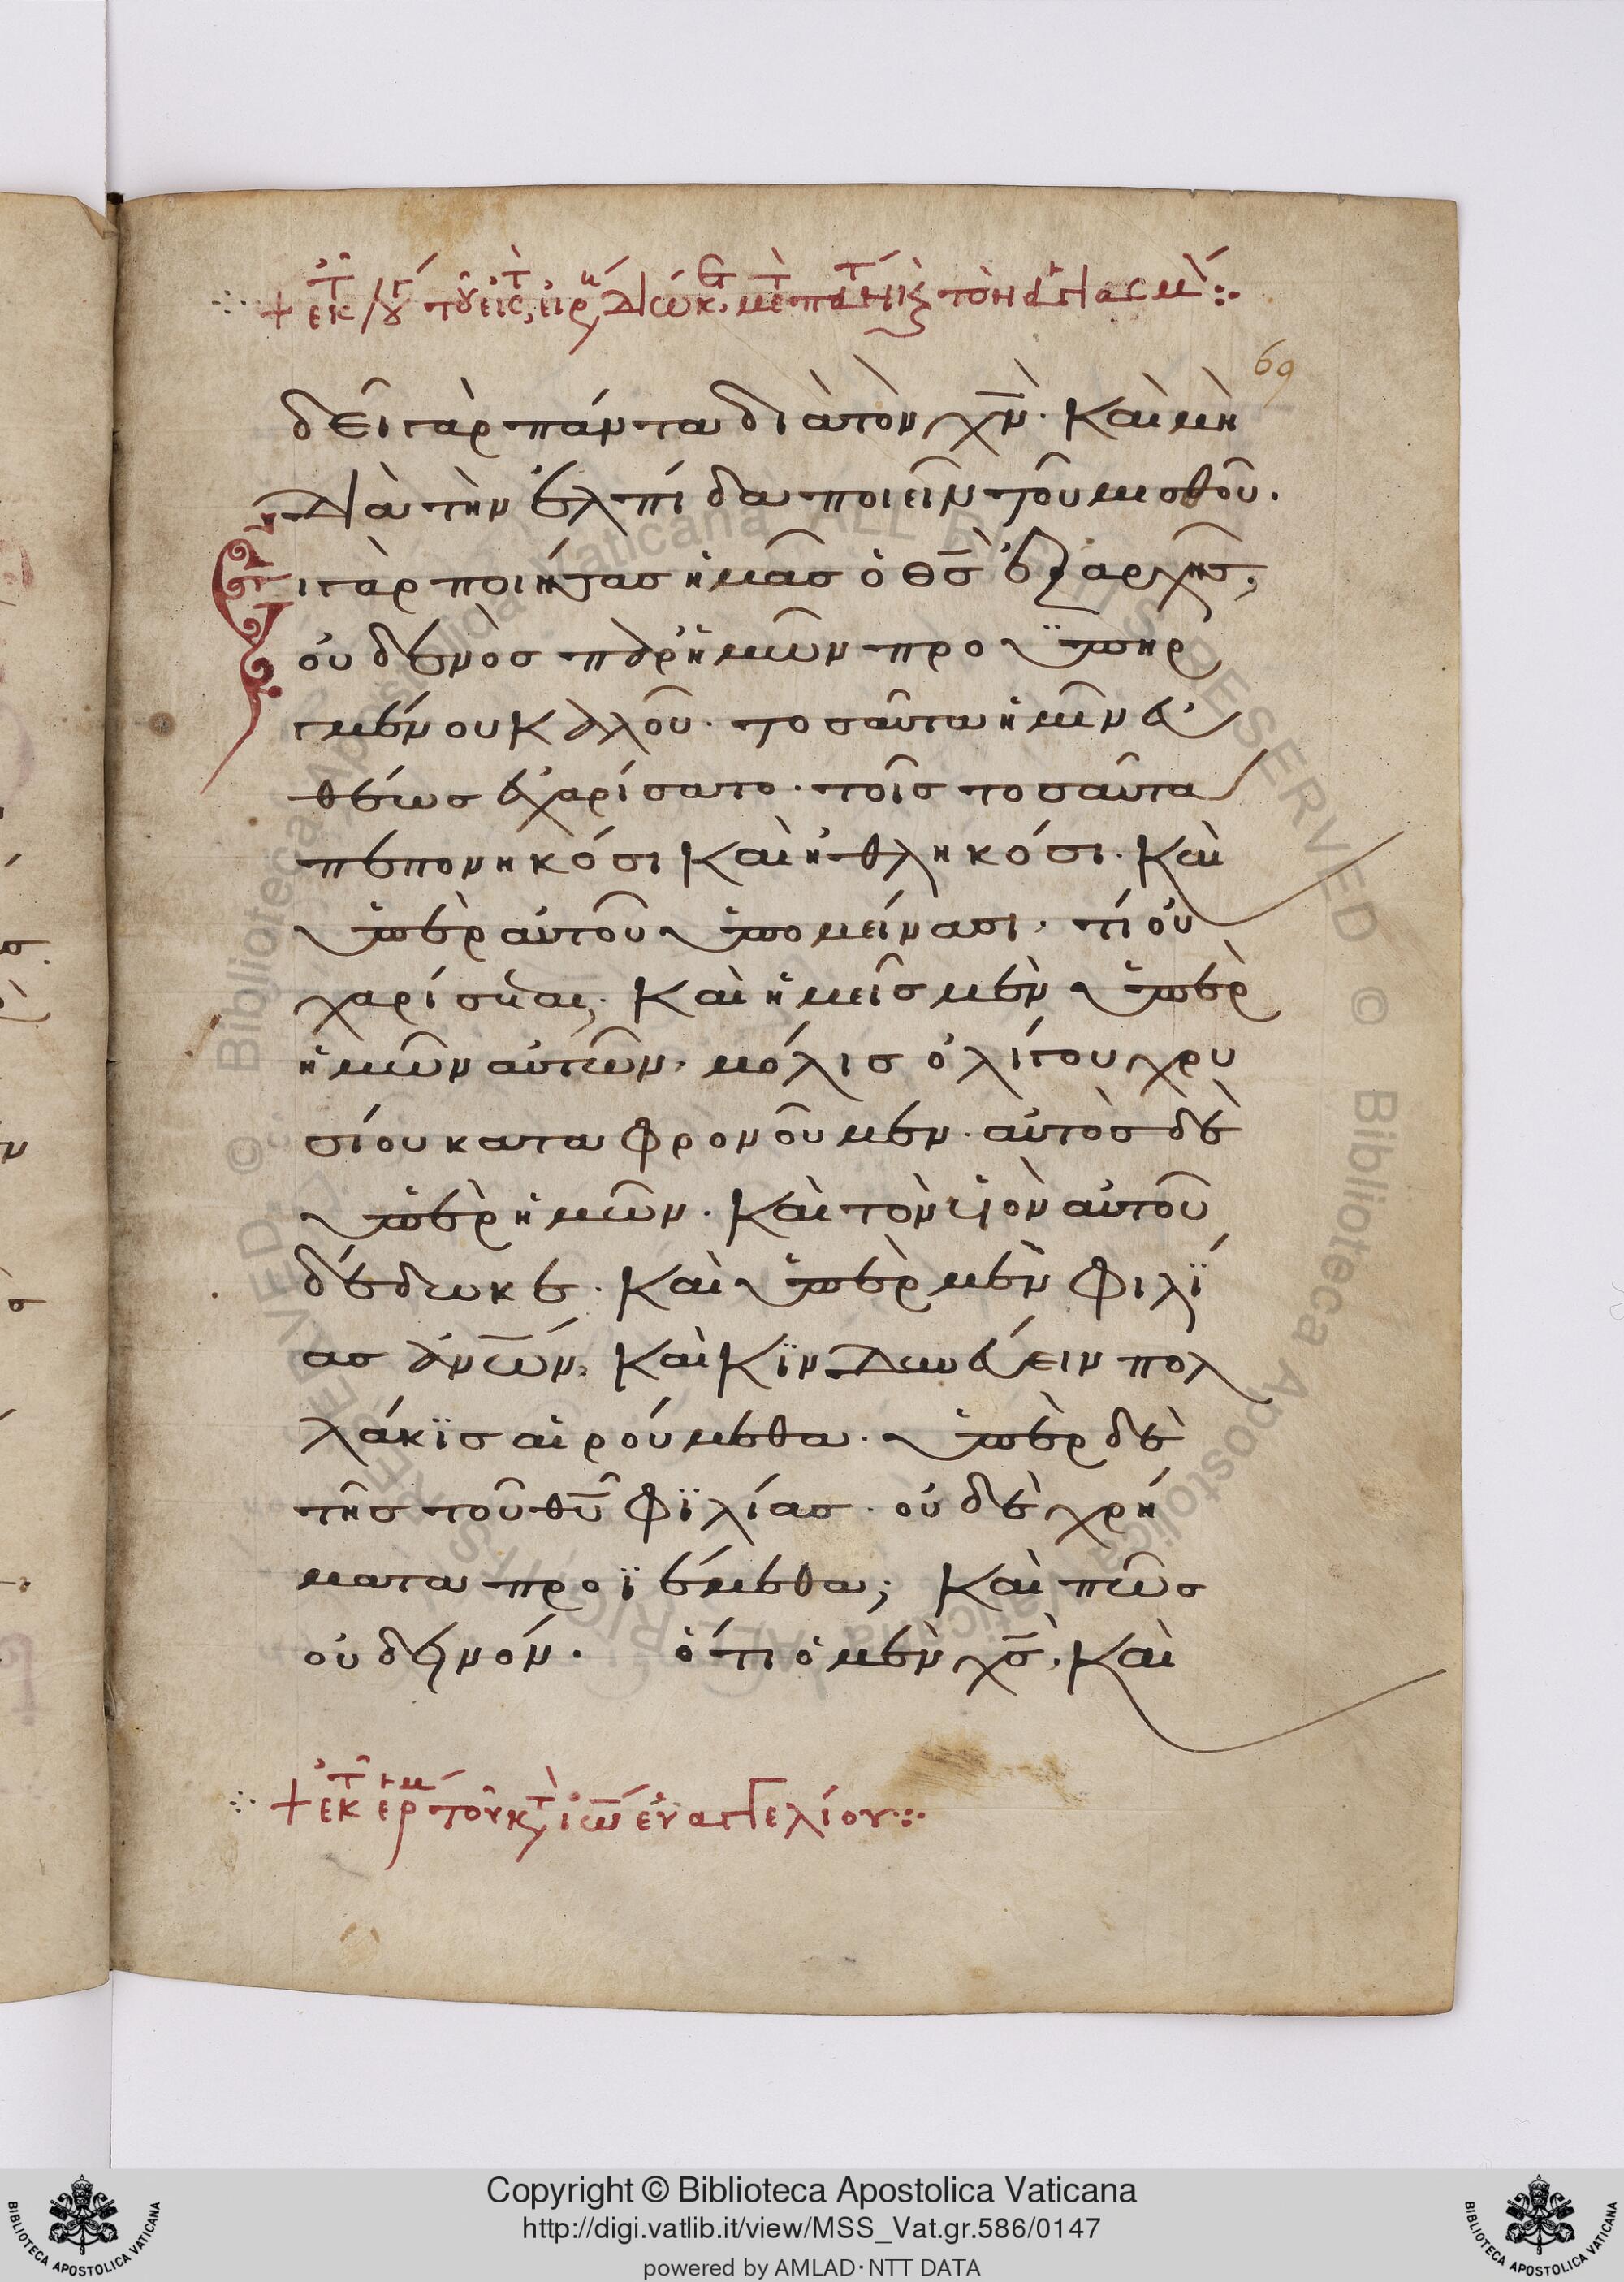 69
δεῖ γὰρ πάντα διὰ τὸν χν̅. καὶ μὴ
διὰ τὴν ἐλπίδα ποιεῖν τοῦ μισθοῦ.
Εἰ γὰρ ποιήσας ἡμᾶς ὁ θσ̅ ἐξαρχῆς,
οὐδενὸς παρ' ἡμῶν προϋπηρ
γμένου καλοῦ. τοσαῦτα ἡμῖν εὐ
θέως ἐχαρίσατο. τοῖς τοσαῦτα
πεπονηκόσι καὶ ἠθληκόσι. καὶ
ὑπὲρ αὐτοῦ ὑπομείνασι. τί οὐ
χαρίσεται; καὶ ἡμεῖς μὲν ὑπὲρ
ἡμῶν αὐτῶν. μόλις ὀλίγου χρυ
σίου καταφρονοῦμεν. αὐτὸς δὲ
ὑπὲρ ἡμῶν. καὶ τὸν υἱὸν αὐτοῦ
δέδωκε. καὶ ὑπὲρ μὲν φιλΐ
ας ἀνω̅ν. καὶ κϊνδυνεύειν πολ
λάκϊς αἱρούμεθα. ὑπὲρ δὲ
τῆς τοῦ θυ̅ φϊλίας. οὐδὲ χρή
ματα προϊέμεθα; καὶ πῶς
οὐ δεινόν. ὅτι ὁ μὲν χσ̅, καὶ
+ ἐκ τοῦ κατὰ ἰω̅ εὐαγγελίου
Copyright © Biblioteca Apostolica Vaticana
http://digi.vatlib.it/view/MSS_Vat.gr.586/0147
powered by AMLAD·NTT DATA
BIBLIOTECA APOSTOLICA VATICANA
BIBLIOTECA APOSTOLICA VATICANA